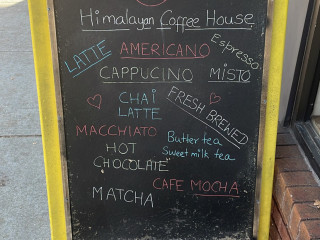 Himalayan Coffee House
LATTE
AMERICANO
Espresso
CAPPUCINO MISTO
CHAI
LATTE
FRESH BREWED
MACCHIATO
HOT
CHOCOLATE
Butter tea
Sweet milk tea
CAFE MOCHA
MATCHA